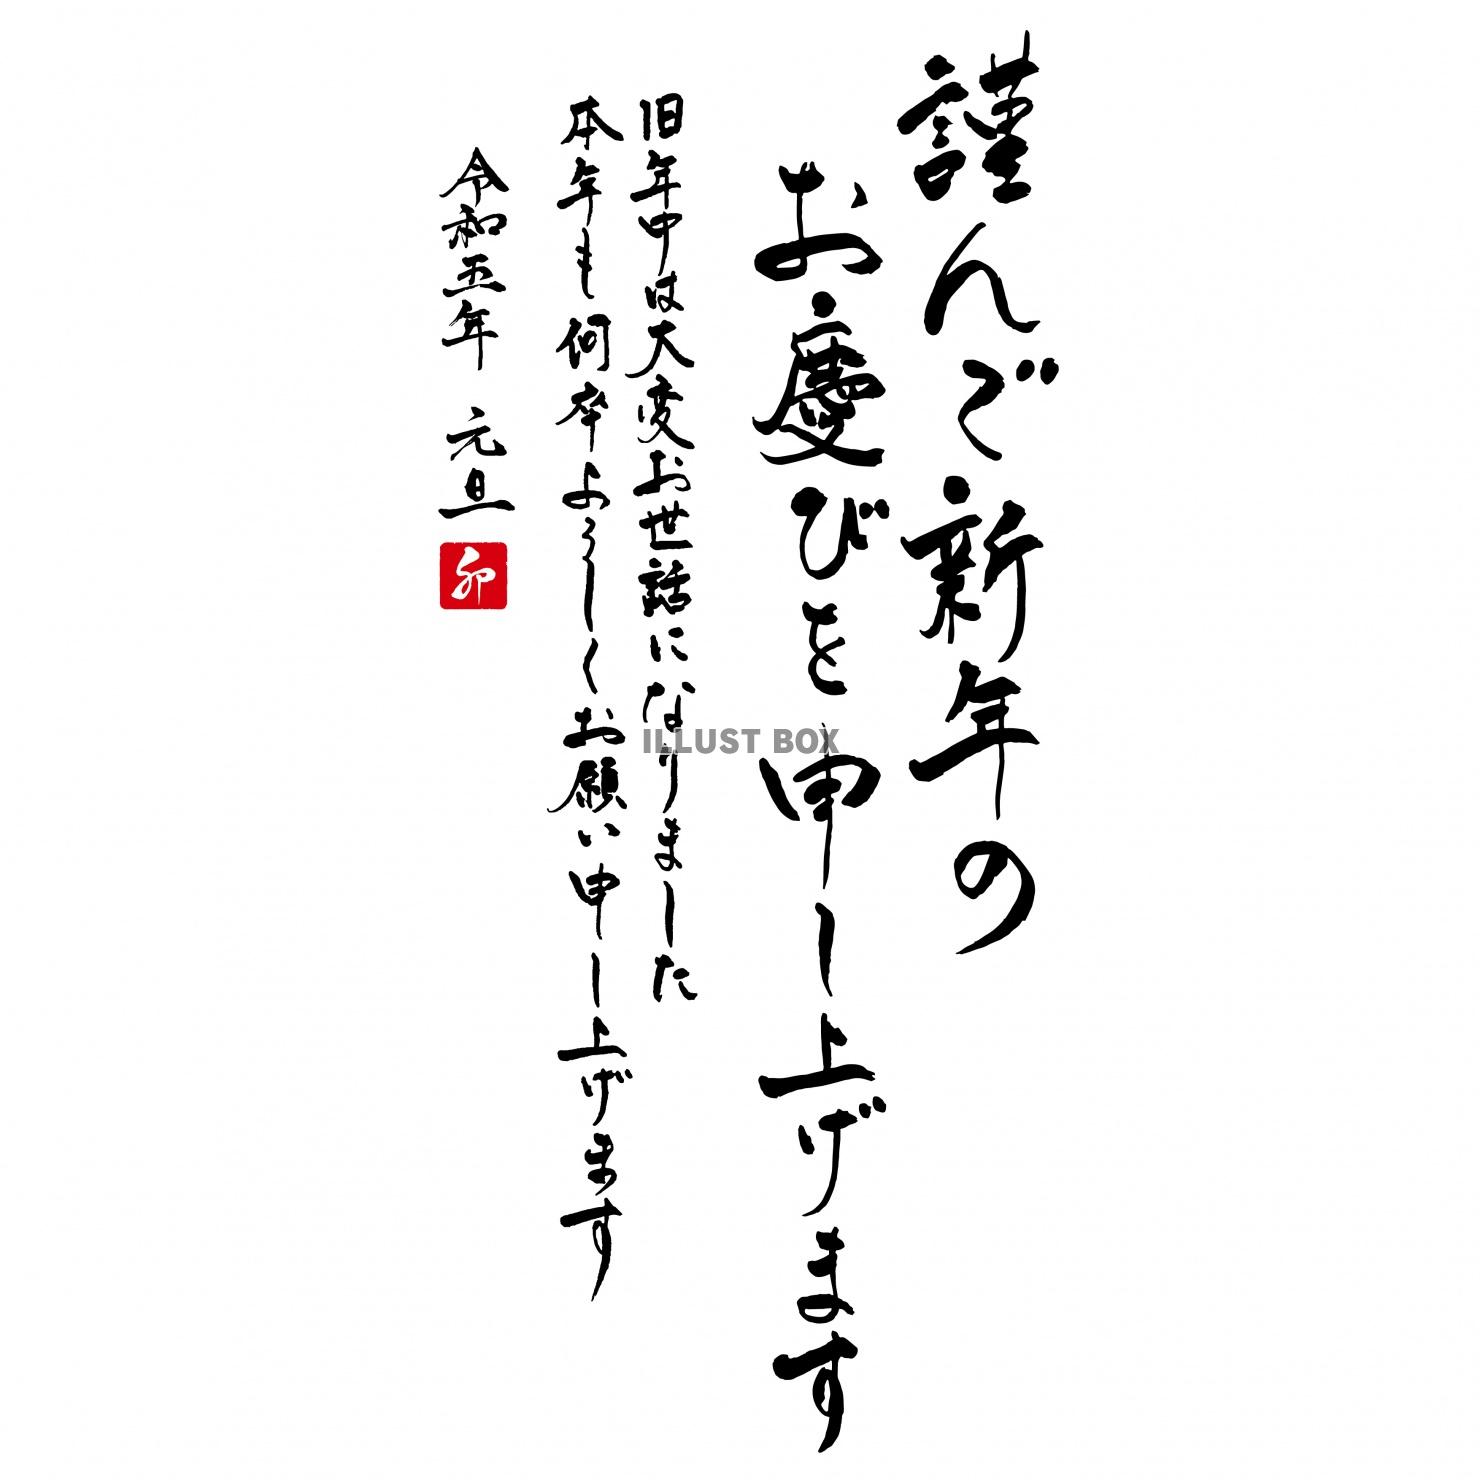 謹んご新年の
お慶びを申し上げます
旧年中は大変お世話になりました
本年も何卒よろしくお願い申し上げます
令和五年 元旦
卯
ILLUST BOX